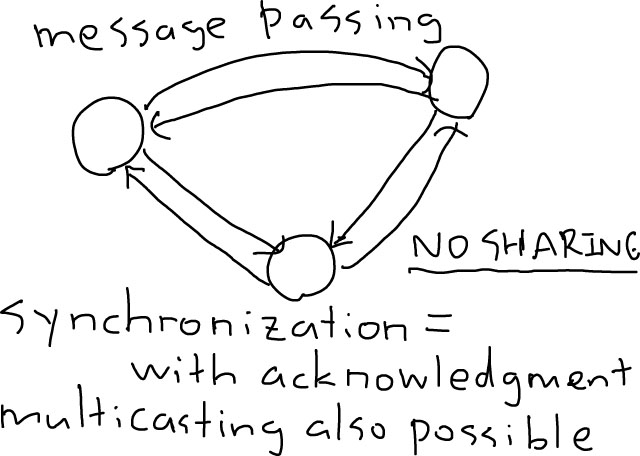 message passing
NO SHARING
synchronization =
with acknowledgment
multicasting also possible